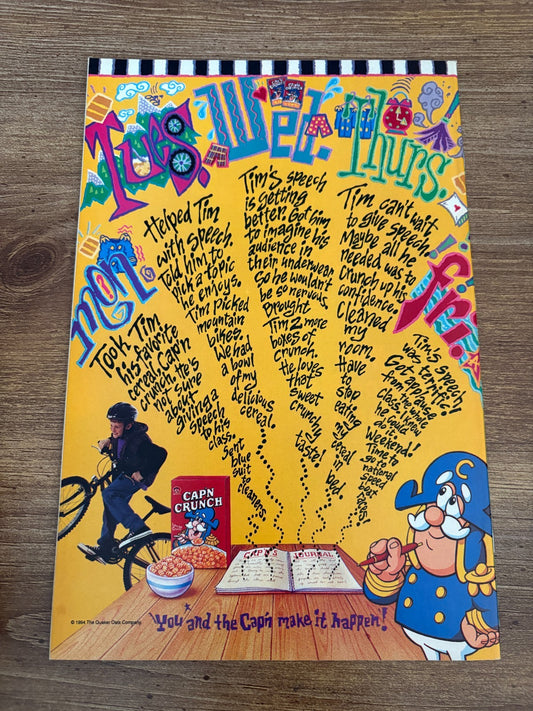 Mon.
Took Tim
his favorite
cereal, Cap'n
Crunch. He's
not sure
about
giving a
speech
to his
class.
Sent
blue
suit
to cleaners.
Tues.
Helped Tim
with speech.
Told him to
pick a topic
he enjoys.
Tim picked
mountain
bikes.
We had
a bowl
of my
delicious
cereal.
Wed.
Tim's speech
is getting
better. Got him
to imagine his
audience in
their underwear
so he wouldn't
be so nervous.
Brought
Tim 2 more
boxes of
Crunch.
He loves
that
sweet
crunchy
taste!
Thurs.
Tim can't wait
to give speech.
Maybe all he
needed was to
Crunch up his
confidence.
Cleaned
my
room.
Have
to
stop
eating
my
cereal
in
bed.
Fri.
Tim's speech
was terrific!
Got applause
from the
class.
he could
do
Weekend!
Time to
go to
national
speed
boat
races.
CAP'N
CRUNCH
CAP'N'S JOURNAL
© 1994 The Quaker Oats Company
You and the Cap'n make it happen!